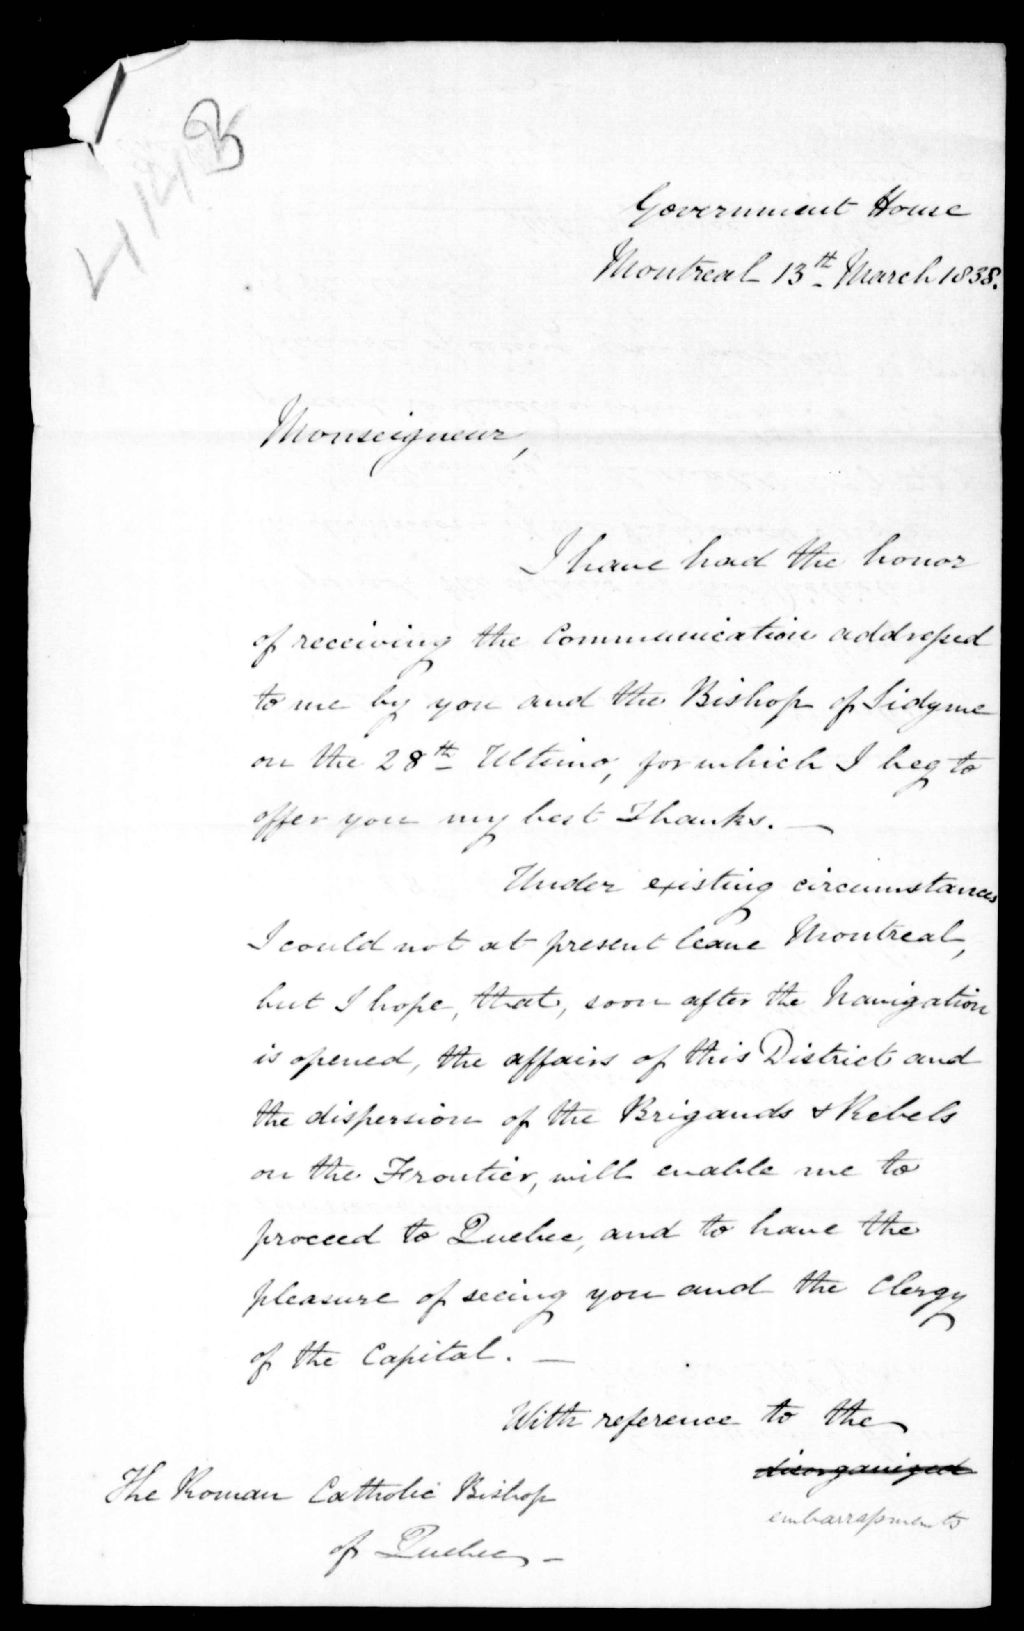 4143
Government House
Montreal 13th March 1838.
Monseigneur,
I have had the honor
of receiving the Communication addressed
to me by you and the Bishop of Sidyme
on the 28th Ultimo, for which I beg to
offer you my best Thanks. —
Under existing circumstances
I could not at present leave Montreal,
but I hope, that, soon after the Navigation
is opened, the affairs of this District and
the dispersion of the Brigands & Rebels
on the Frontier, will enable me to
proceed to Quebec, and to have the
pleasure of seeing you and the Clergy
of the Capital. —
With reference to the
disorganized
embarrassments
The Roman Catholic Bishop
of Quebec —